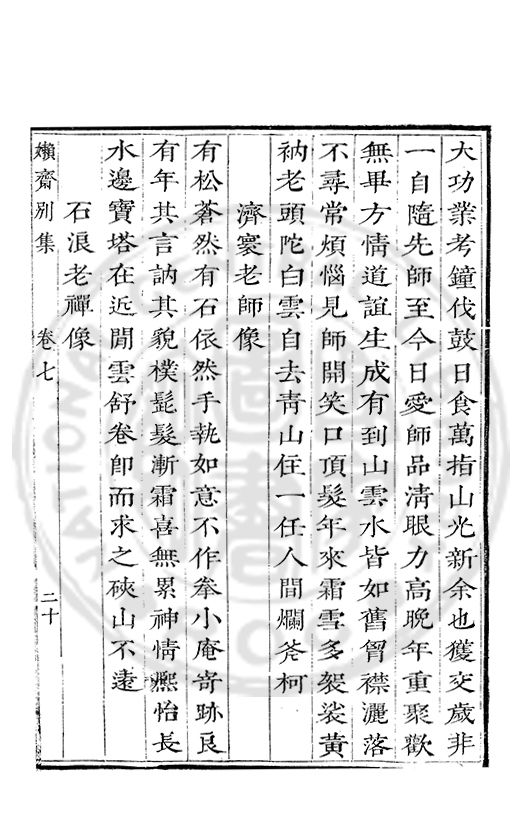 大功業考鐘伐鼓日食萬指山光新余也獲交歲非
一自隨先師至今日愛師品清眼力高晚年重聚歡
無畢方情道誼生成有到山雲水皆如舊胷襟灑落
不尋常煩惱見師開笑口頂髮年來霜雪多袈裟黃
衲老頭陀白雲自去青山住一任人間爛斧柯
濟寰老師像
有松蒼然有石依然手執如意不作拳小庵寄跡良
有年其言訥其貌樸髭髮漸霜喜無累神情熈怡長
水邊寶塔在近閒雲舒卷卽而求之硤山不遠
石浪老禪像
嬾齋別集 卷七 二十